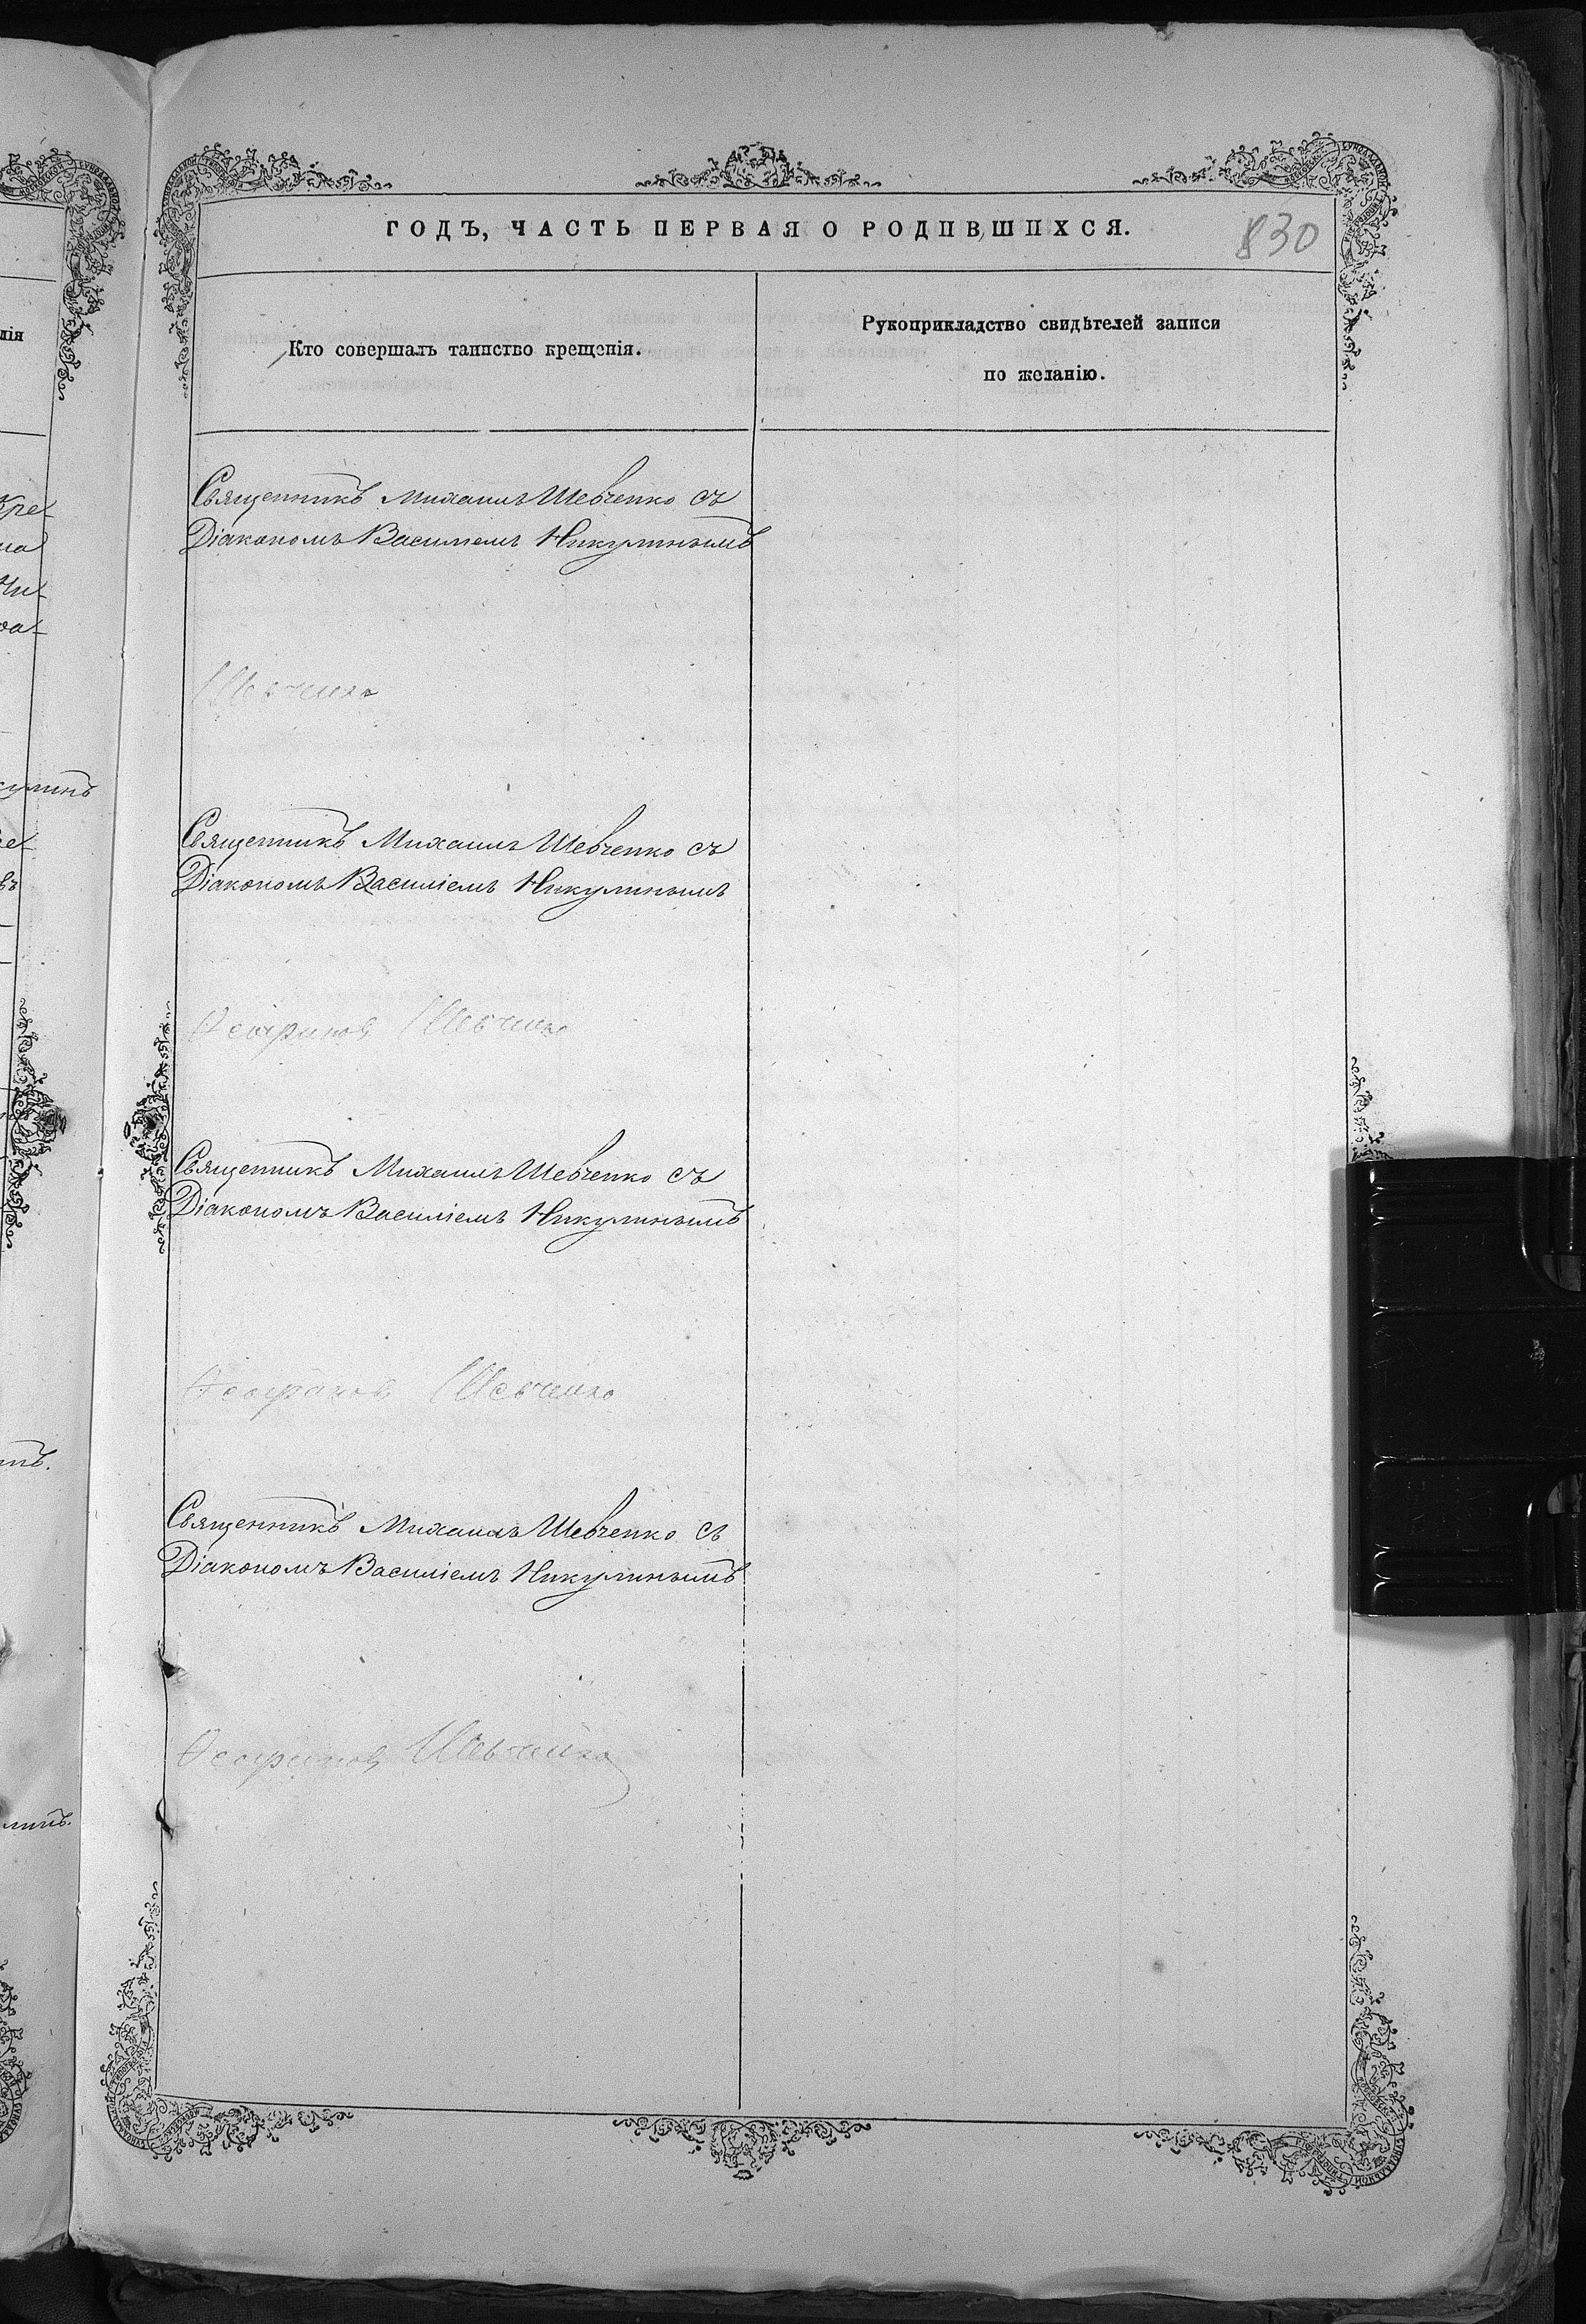 ГОДЪ, ЧАСТЬ ПЕРВАЯ О РОДИВШИХСЯ.
830
Кто совершалъ таинство крещенія.
Рукоприкладство свидѣтелей записи
по желанію.
Священникъ Михаилъ Шевченко съ
Діакономъ Василіемъ Никулинымъ
Шевченко
Священникъ Михаилъ Шевченко съ
Діакономъ Василіемъ Никулинымъ
Шевченко
Священникъ Михаилъ Шевченко съ
Діакономъ Василіемъ Никулинымъ
Шевченко
Священникъ Михаилъ Шевченко съ
Діакономъ Василіемъ Никулинымъ
Шевченко